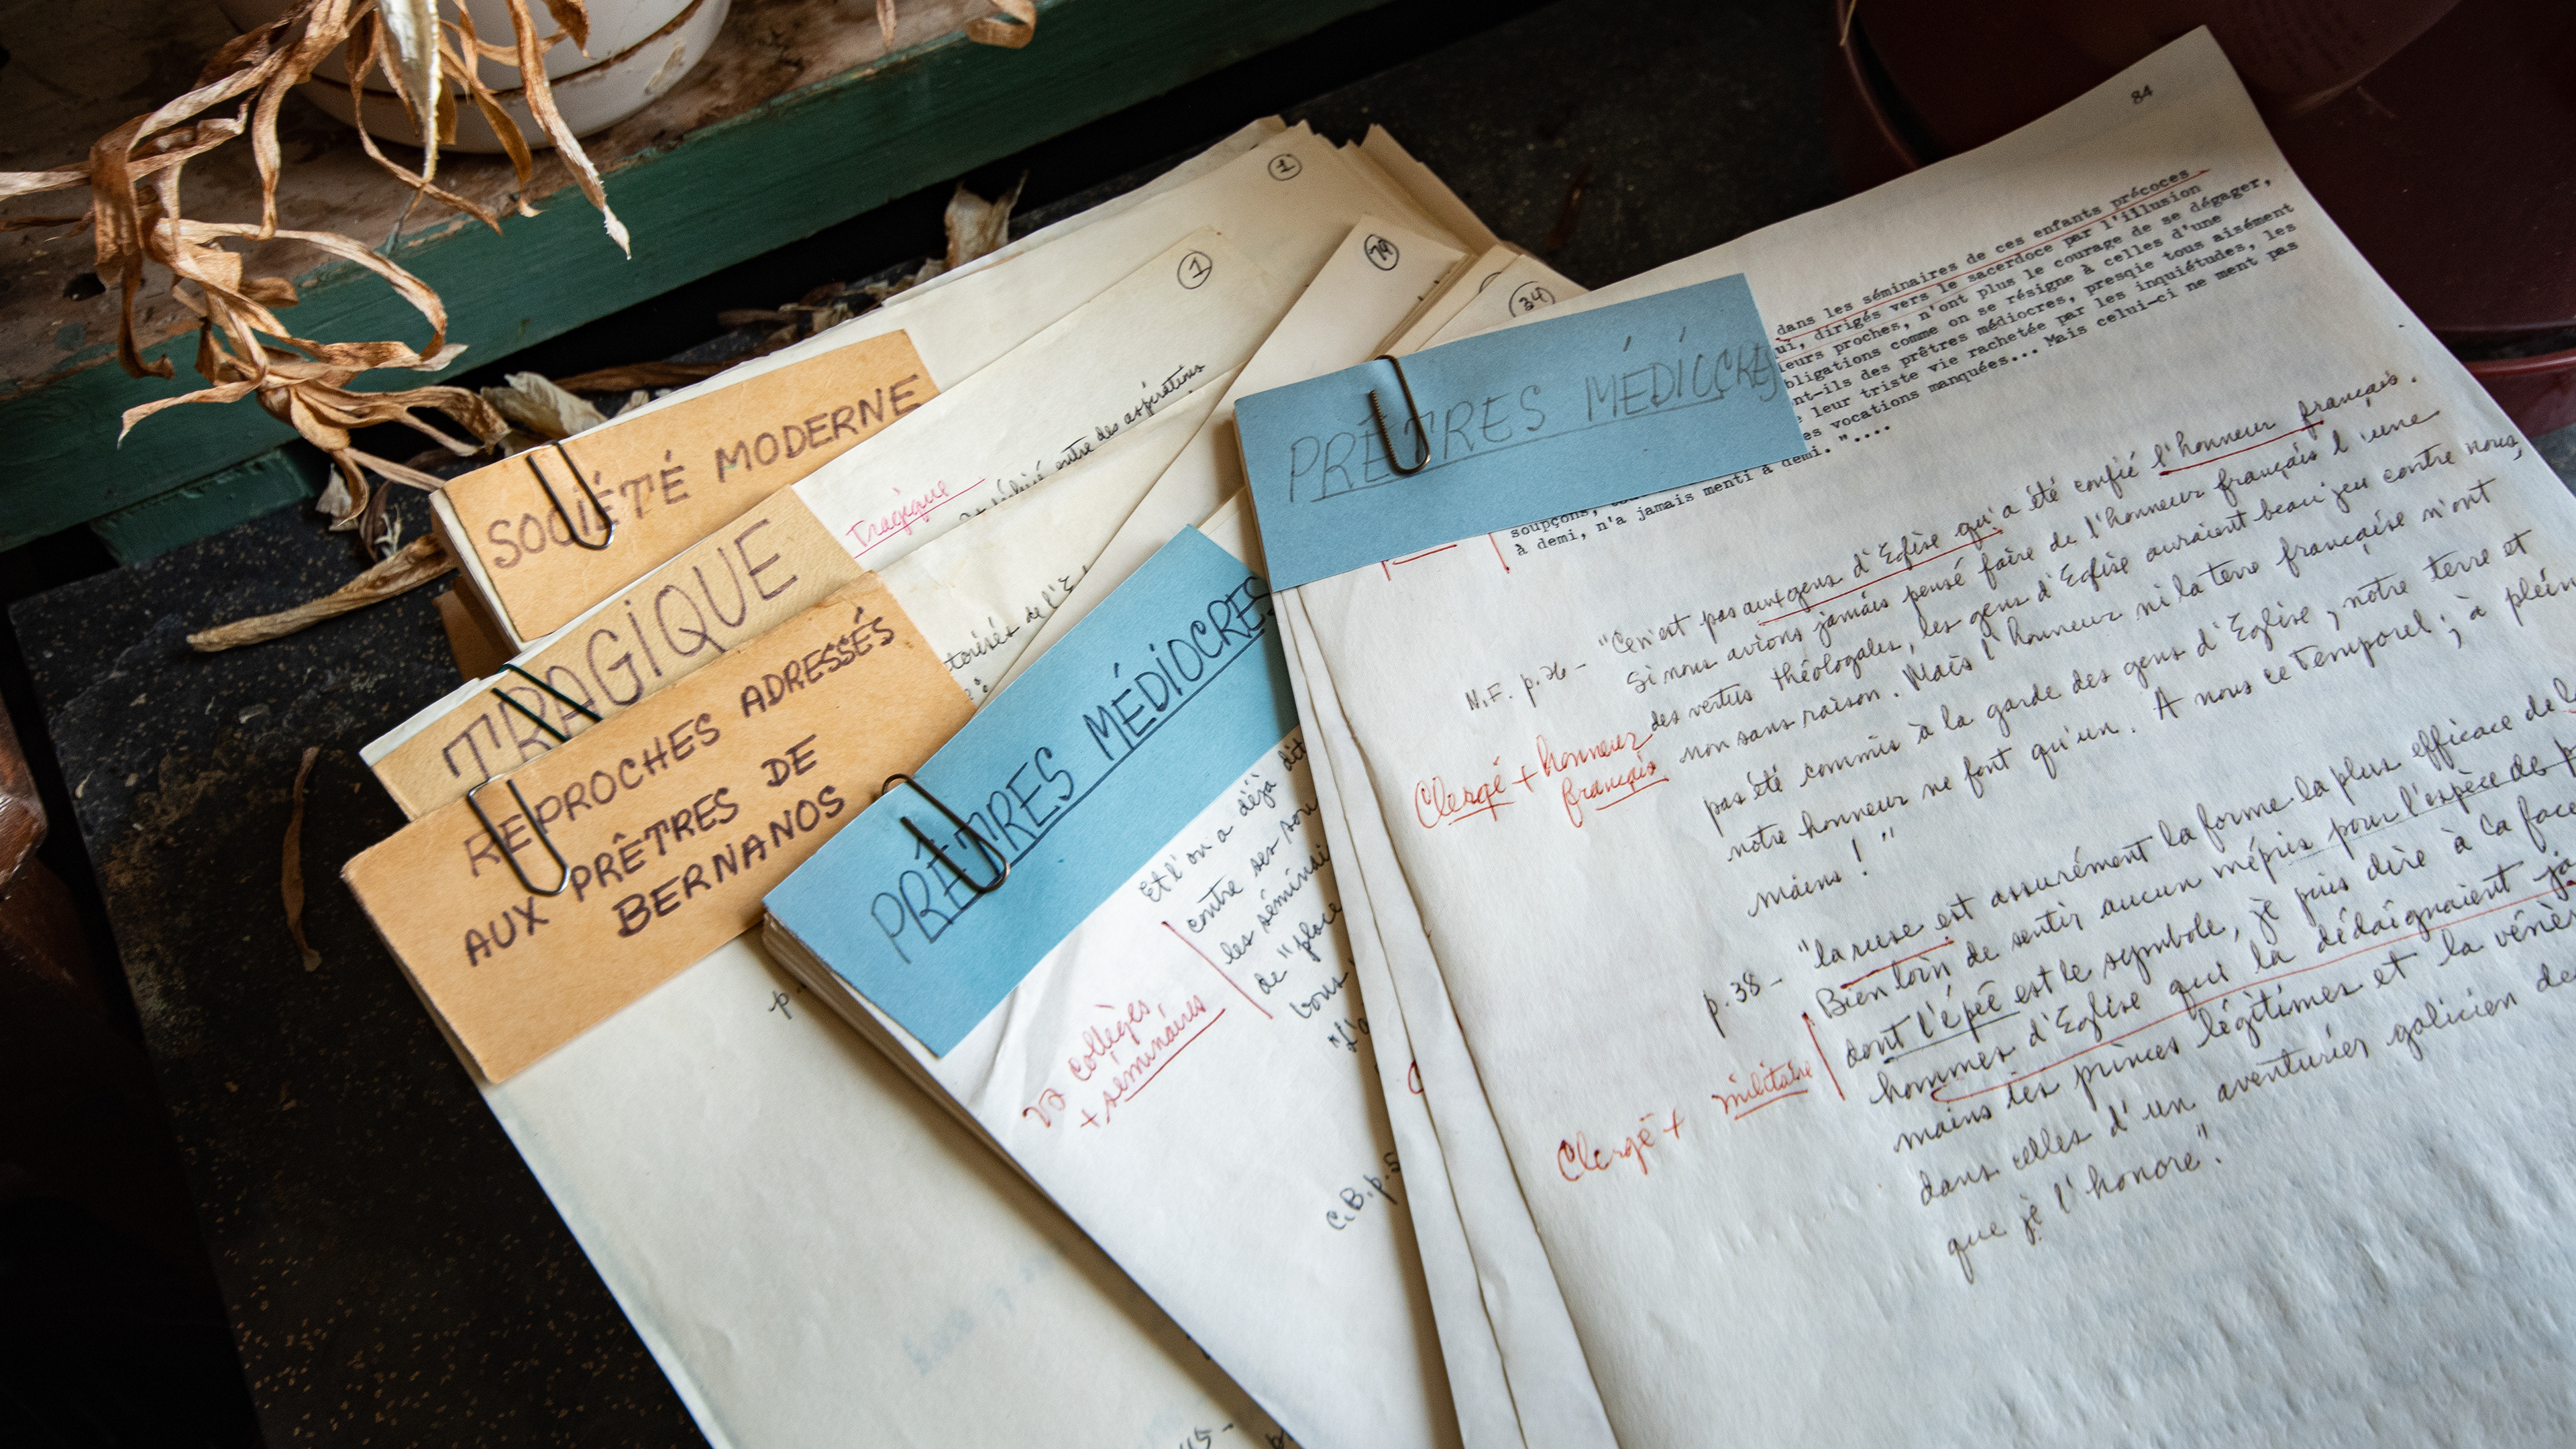 SOCIÉTÉ MODERNE
1
TRAGIQUE
1
Tragique
entre des aspirations
REPROCHES ADRESSÉS
AUX PRÊTRES DE
BERNANOS
79
34
PRÊTRES MÉDIOCRES
Et l'on a déjà dit
contre ses
les séminai
de "place
vous
collèges
+ séminaires
C.B. p.
PRÊTRES MÉDIOCRES
84
dans les séminaires de ces enfants précoces
ui, dirigés vers le sacerdoce par l'illusion
leurs proches, n'ont plus le courage de se dégager,
bligations comme on se résigne à celles d'une
nt-ils des prêtres médiocres, presqie tous aisément
leur triste vie rachetée par les inquiétudes, les
es vocations manquées... Mais celui-ci ne ment pas
soupçons,
à demi, n'a jamais menti à demi."....
N.F. p. 26 - "Ce n'est pas aux gens d'Eglise qu'a été confié l'honneur français.
Si nous avions jamais pensé faire de l'honneur français l'une
des vertus théologales, les gens d'Eglise auraient beau jeu contre nous,
Clergé + honneur
français
non sans raison. Mais l'honneur ni la terre française n'ont
pas été commis à la garde des gens d'Eglise, notre terre et
notre honneur ne font qu'un. A nous ce temporel; à plein
mains!"
p. 38 - "la ruse est assurément la forme la plus efficace de
Bien loin de sentir aucun mépris pour l'espèce de
dont l'épée est le symbole, je puis dire à la face
Clergé + militaire
hommes d'Eglise qui la dédaignaient
mains les princes légitimes et la
dans celles d'un aventurier galicien de
que je l'honore".